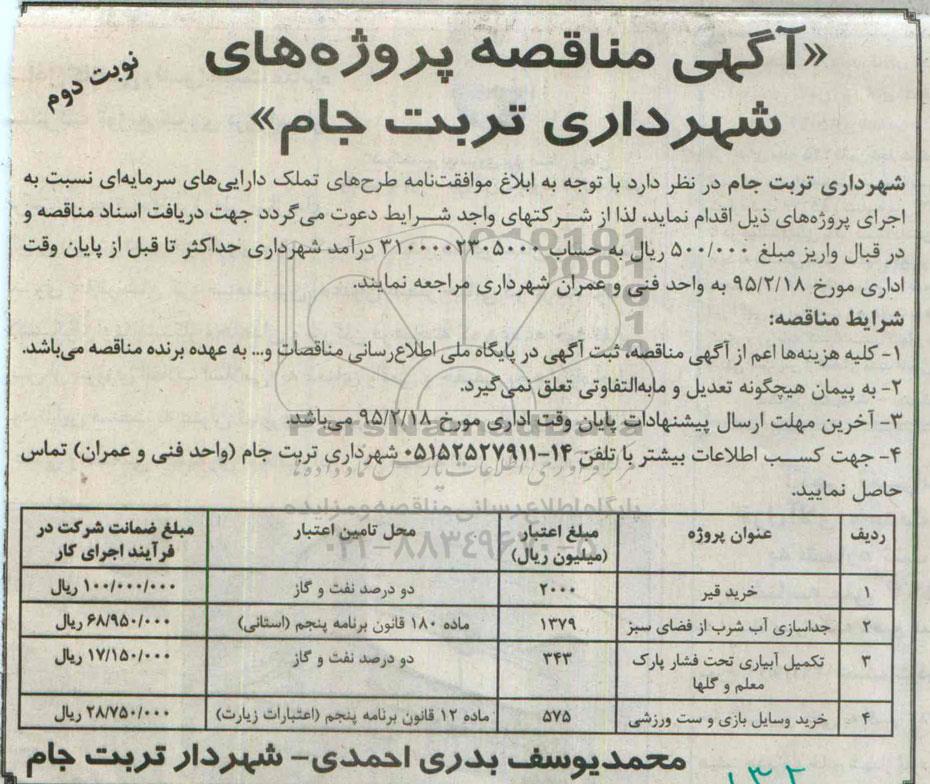 «آگهی مناقصه پروژه‌های
نوبت دوم
شهرداری تربت جام»
شهرداری تربت جام در نظر دارد با توجه به ابلاغ موافقت‌نامه طرح‌های تملک دارایی‌های سرمایه‌ای نسبت به
اجرای پروژه‌های ذیل اقدام نماید، لذا از شرکتهای واجد شرایط دعوت می‌گردد جهت دریافت اسناد مناقصه و
در قبال واریز مبلغ ۵۰۰/۰۰۰ ریال به حساب ۳۱۰۰۰۰۲۳۰۵۰۰۰ درآمد شهرداری حداکثر تا قبل از پایان وقت
اداری مورخ ۹۵/۲/۱۸ به واحد فنی و عمران شهرداری مراجعه نمایند.
شرایط مناقصه:
۱- کلیه هزینه‌ها اعم از آگهی مناقصه، ثبت آگهی در پایگاه ملی اطلاع‌رسانی مناقصات و... به عهده برنده مناقصه می‌باشد.
۲- به پیمان هیچگونه تعدیل و مابه‌التفاوتی تعلق نمی‌گیرد.
۳- آخرین مهلت ارسال پیشنهادات پایان وقت اداری مورخ ۹۵/۲/۱۸ می‌باشد.
ParsNamadData
۴- جهت کسب اطلاعات بیشتر با تلفن ۱۴-۰۵۱۵۲۵۲۷۹۱۱ شهرداری تربت جام (واحد فنی و عمران) تماس
حاصل نمایید.
پایگاه اطلاع رسانی مناقصه و مزایده
ردیف عنوان پروژه مبلغ اعتبار (میلیون ریال) محل تامین اعتبار مبلغ ضمانت شرکت در فرآیند اجرای کار
۱ خرید قیر ۲۰۰۰ دو درصد نفت و گاز ۱۰۰/۰۰۰/۰۰۰ ریال
۲ جداسازی آب شرب از فضای سبز ۱۳۷۹ ماده ۱۸۰ قانون برنامه پنجم (استانی) ۶۸/۹۵۰/۰۰۰ ریال
۳ تکمیل آبیاری تحت فشار پارک معلم و گلها ۳۴۳ دو درصد نفت و گاز ۱۷/۱۵۰/۰۰۰ ریال
۴ خرید وسایل بازی و ست ورزشی ۵۷۵ ماده ۱۲ قانون برنامه پنجم (اعتبارات زیارت) ۲۸/۷۵۰/۰۰۰ ریال
محمدیوسف بدری احمدی- شهردار تربت جام